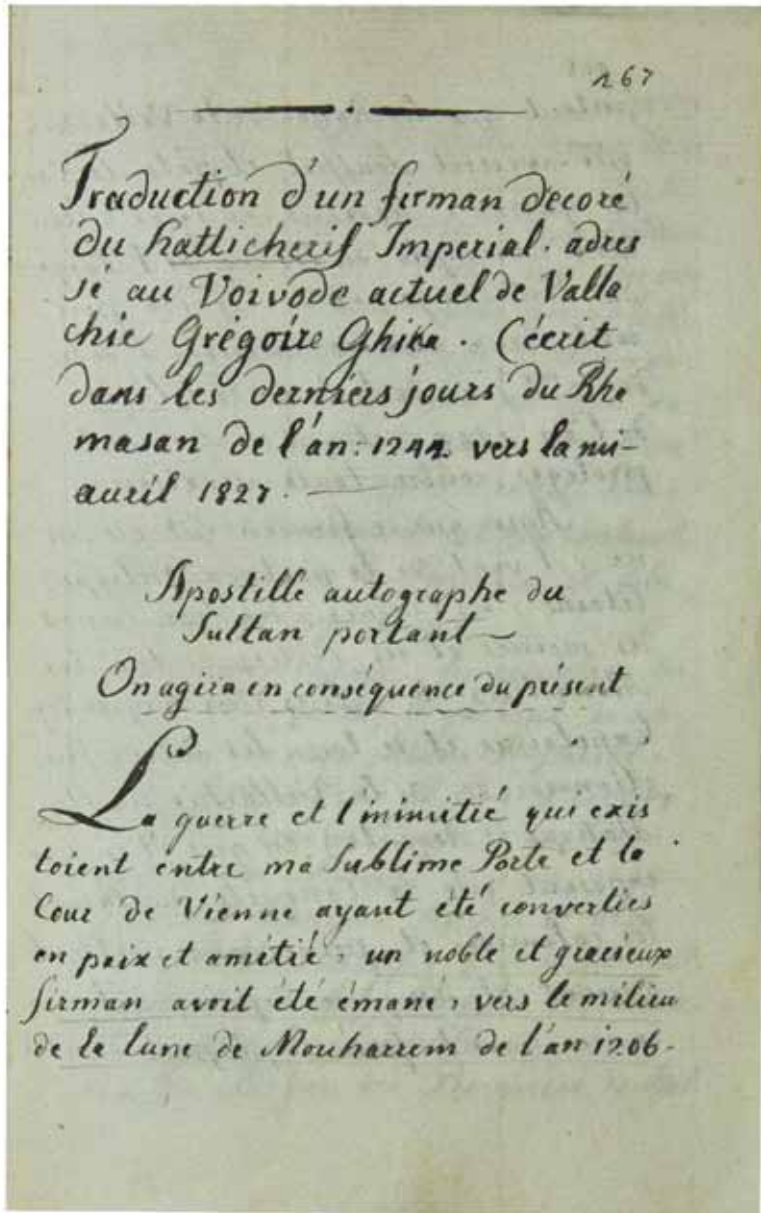 267
Traduction d'un firman decoré
du hatticherif Imperial. adres
sé au Voivode actuel de Valla
chie Grégoire Ghika. Cécrit
dans les derniers jours du Rha
masan de l'an: 1244. vers la mi-
avril 1827.
Apostille autographe du
Sultan portant —
On agira en conséquence du présent
La guerre et l'inimitié qui exis
toient entre ma Sublime Porte et la
Cour de Vienne ayant été converties
en paix et amitié, un noble et gracieux
firman avoit été émané, vers le milieu
de la lune de Mouharrem de l'an 1206-